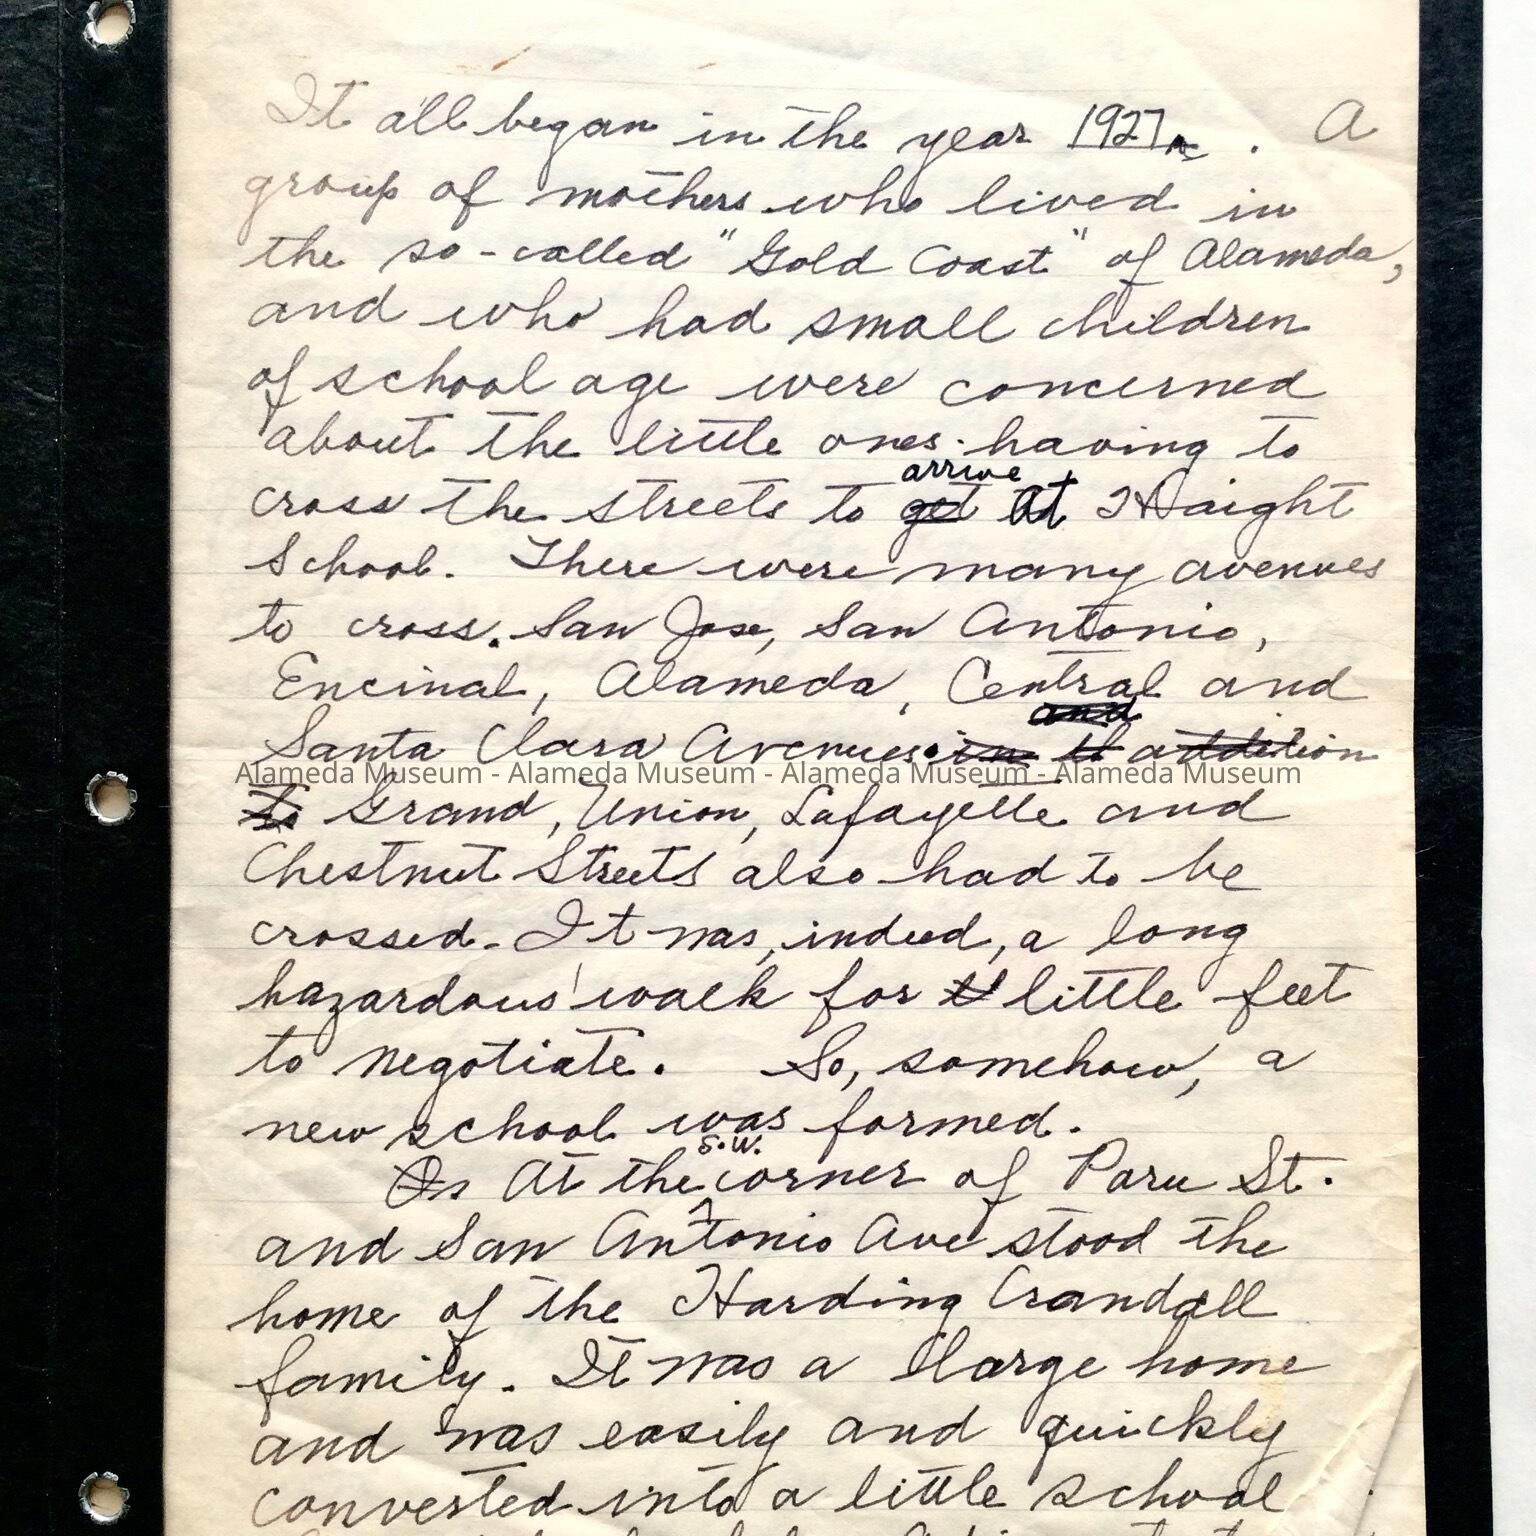 It all began in the year 1927. A
group of mothers who lived in
the so-called "Gold Coast" of Alameda,
and who had small children
of school age were concerned
about the little ones having to
arrive
cross the streets to get at Haight
School. There were many avenues
to cross. San Jose, San Antonio,
Encinal, Alameda, Central and
and
Santa Clara Avenues. in addition
Alameda Museum - Alameda Museum - Alameda Museum - Alameda Museum
to Grand, Union, Lafayette and
Chestnut Streets also had to be
crossed. It was, indeed, a long
hazardous walk for little feet
to negotiate. So, somehow, a
new school was formed.
S.W.
On At the corner of Paru St.
and San Antonio Ave stood the
home of the Harding Crandall
family. It was a large home
and was easily and quickly
converted into a little school